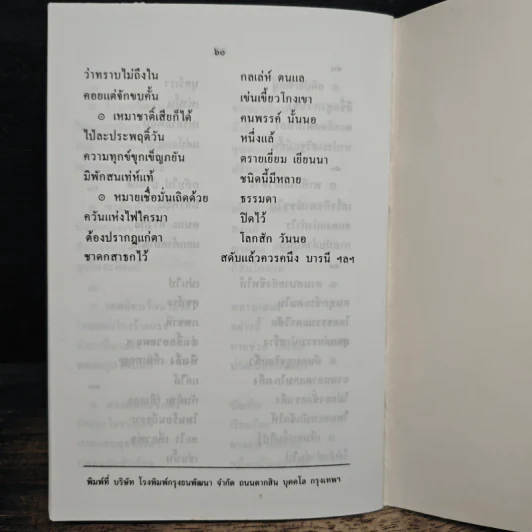 ๖๐
ว่าทราบไม่ถึงใน กลเล่ห์ ตนแล
คอยแต่จักขบคั้น เช่นเขี้ยวโกงเขา
๏ เหมาชาติ์เสียก็ได้ คนพรรค์ นั้นนอ
ไป่ละประพฤติ์วัน หนึ่งแล้
ความทุกข์ขุกเข็ญภยัน ตรายเยี่ยม เยียนนา
มิพักสนเท่ห์แท้ ชนิดนี้มีหลาย
๏ หมายเชื่อมั่นเถิดด้วย ธรรมดา
ควันแห่งไฟใครมา ปิดไว้
ต้องปรากฏแก่ตา โลกสัก วันนอ
ชาดกสาธกไว้ สดับแล้วควรคนึง บารนี ฯลฯ
พิมพ์ที่ บริษัท โรงพิมพ์กรุงธนพัฒนา จำกัด ถนนตากสิน บุคคโล กรุงเทพฯ